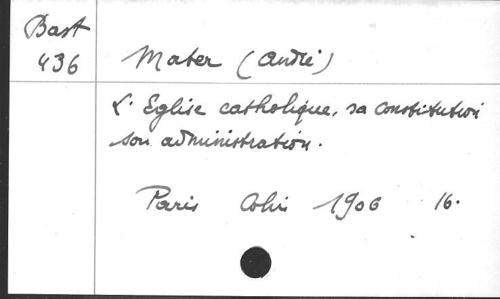 Bast
436
Mater (André)
L'Eglise catholique, sa constitution
son administration.
Paris Colin 1906 16.